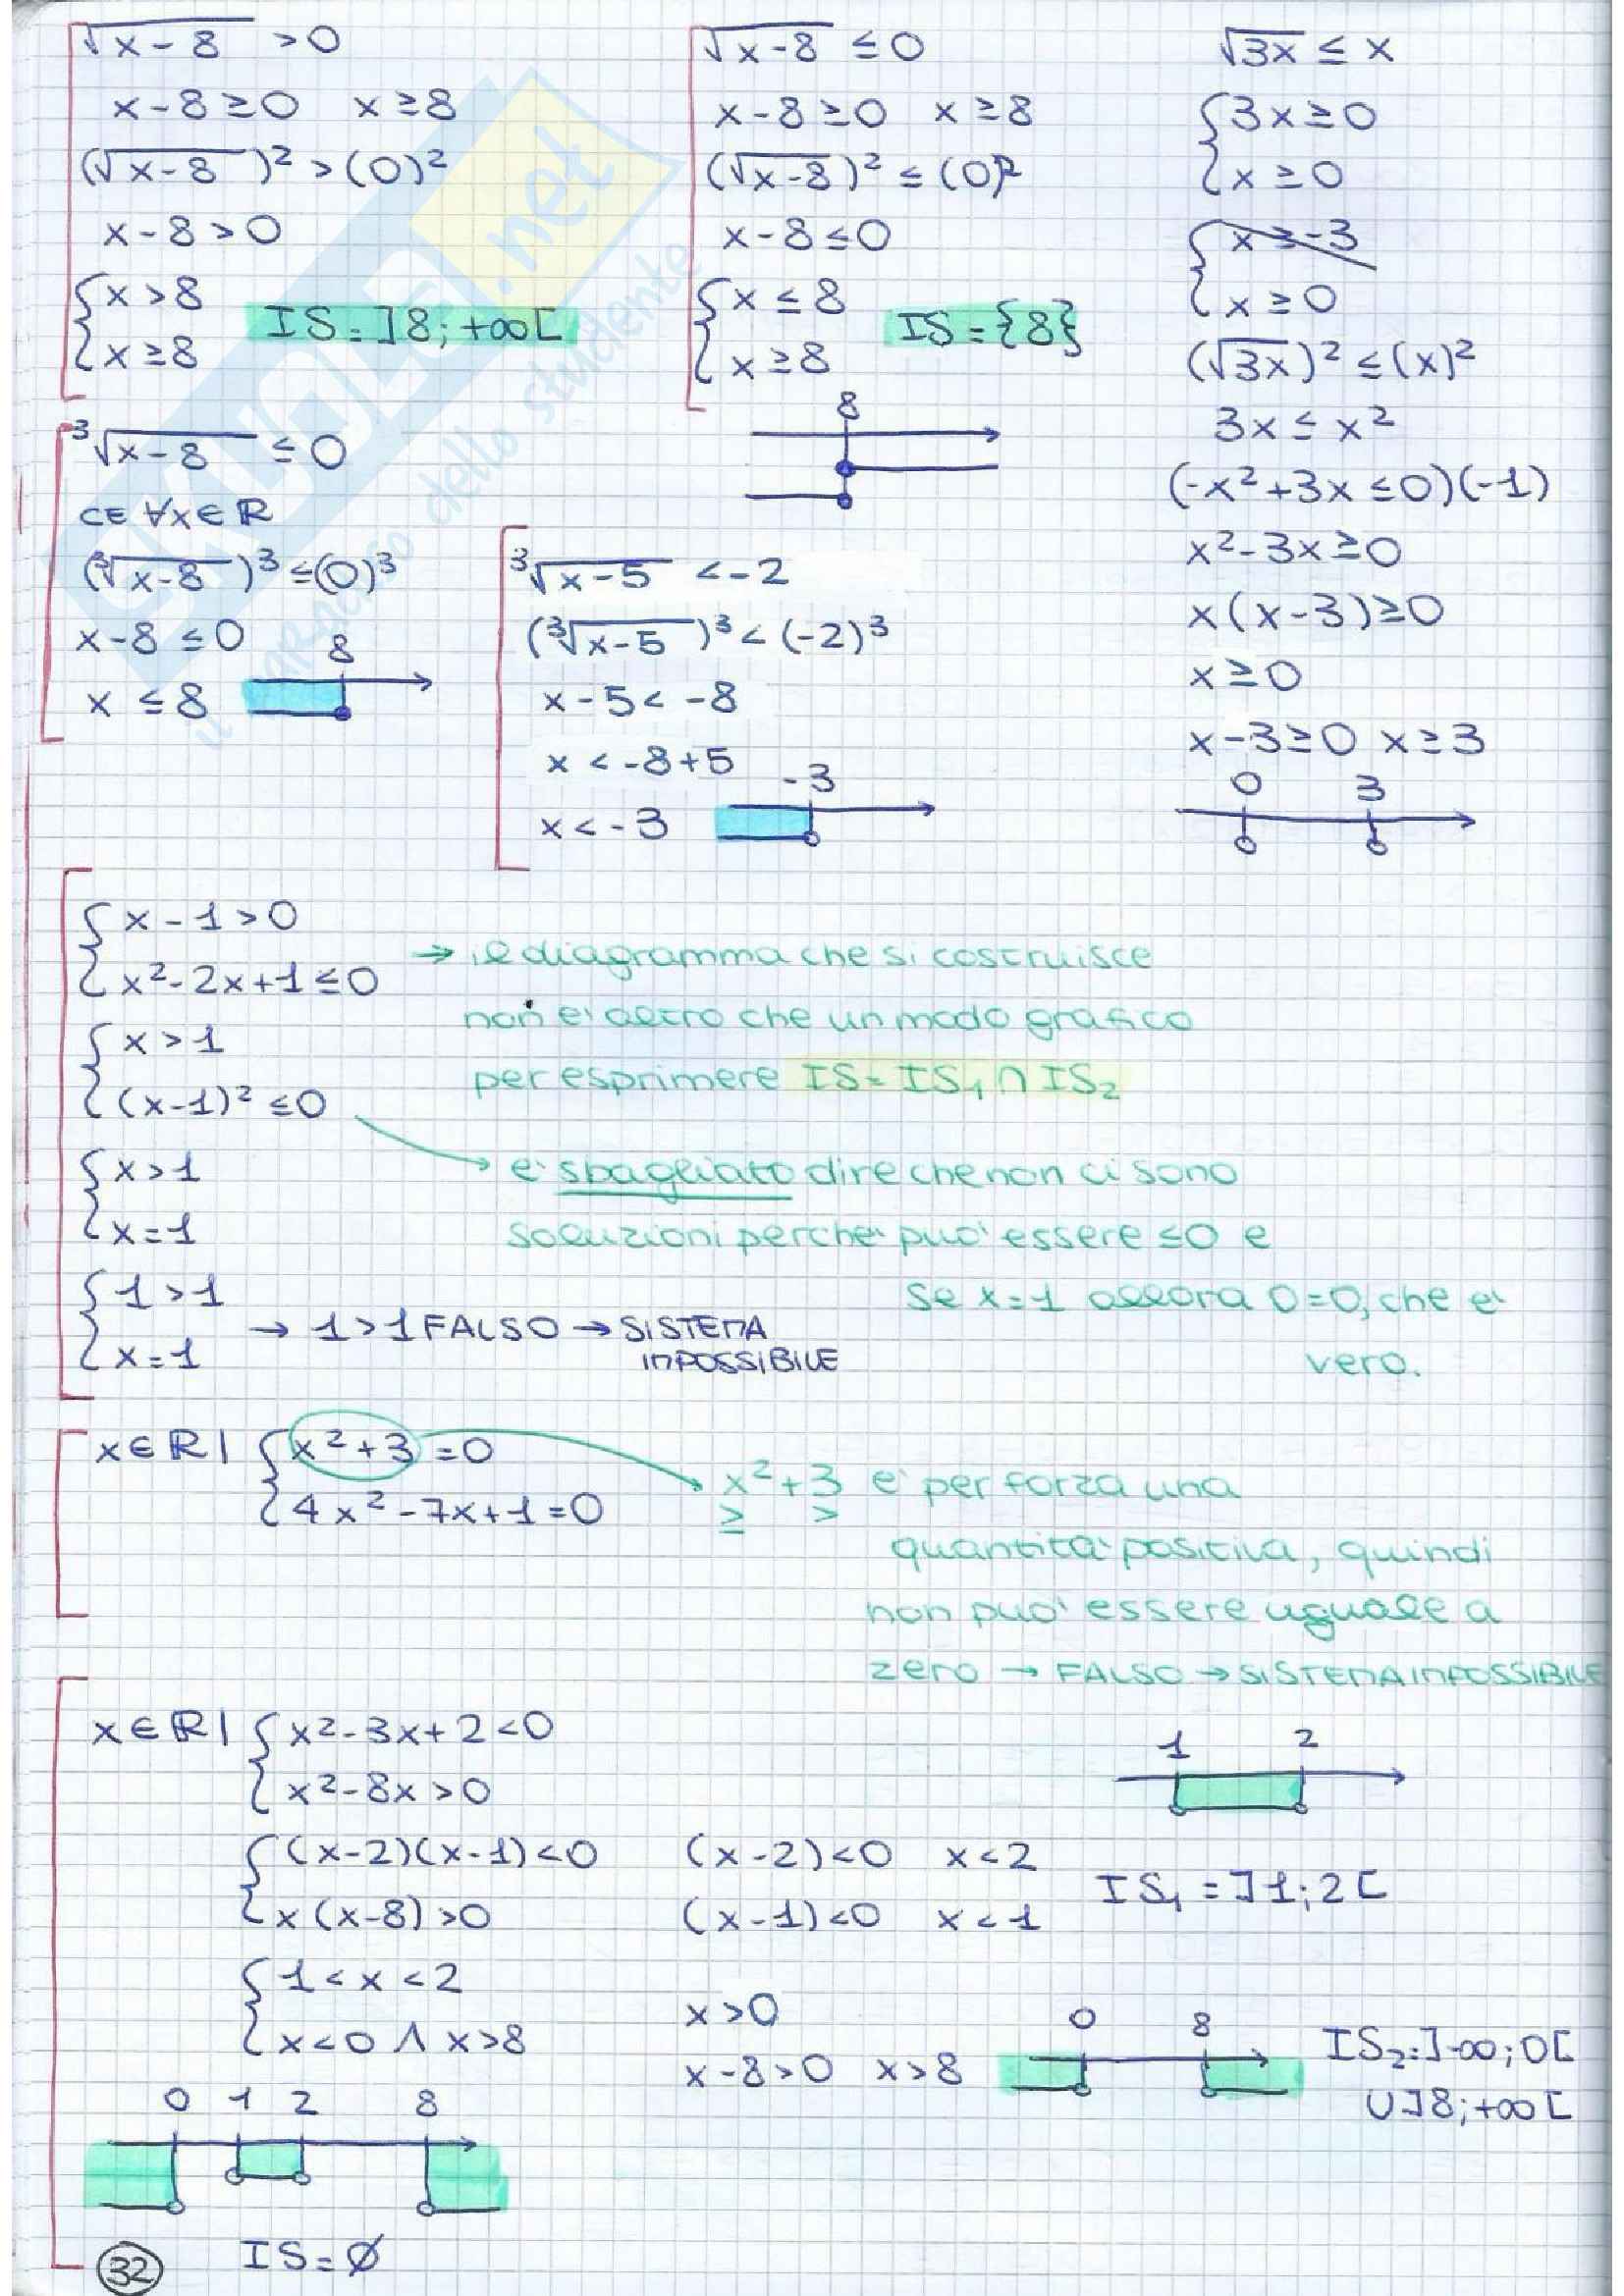 √x-8 >0
x-8≥0 x≥8
(√x-8)² >(0)²
x-8>0
{x>8
{x≥8
IS=]8;+∞[
√x-8 ≤0
x-8≥0 x≥8
(√x-8)² ≤(0)²
x-8≤0
{x≤8
{x≥8
IS={8}
8
√3x ≤ x
{3x≥0
{x≥0
{x≥-3
{x≥0
(√3x)² ≤(x)²
3x≤x²
(-x²+3x≤0)(-1)
x²-3x≥0
x(x-3)≥0
x≥0
x-3≥0 x≥3
0 3
³√x-8 ≤0
CE ∀x∈R
(³√x-8)³≤(0)³
x-8≤0
x≤8
8
³√x-5 <-2
(³√x-5)³<(-2)³
x-5<-8
x<-8+5
x<-3
-3
{x-1>0
{x²-2x+1≤0
→ il diagramma che si costruisce
non e' altro che un modo grafico
per esprimere IS=IS₁∩IS₂
{x>1
{(x-1)²≤0
{x>1
{x=1
→ e' sbagliato dire che non ci sono
soluzioni perche' puo' essere ≤0 e
se x=1 allora 0=0, che e'
vero.
{1>1
{x=1
→ 1>1 FALSO → SISTEMA
IMPOSSIBILE
x∈R| {x²+3=0
{4x²-7x+1=0
x²+3 e' per forza una
≥ >
quantita' positiva, quindi
non puo' essere uguale a
zero → FALSO → SISTEMA IMPOSSIBILE
x∈R| {x²-3x+2<0
{x²-8x>0
1 2
{(x-2)(x-1)<0
{x(x-8)>0
(x-2)<0 x<2
(x-1)<0 x<1
IS₁=]1;2[
{1<x<2
{x<0 ∧ x>8
x>0
x-8>0 x>8
0 8
IS₂=]-∞;0[
∪]8;+∞[
0 1 2 8
IS=∅
32
SKUOLA.net
il paradiso dello studente